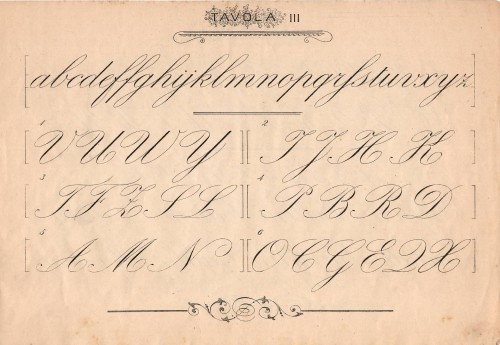 TAVOLA III
abcdeffghijklmnopqrſstuvxyz
1 V U W Y 2 I J H K
3 T F Z S L 4 P B R D
5 A M N 6 O C G E Q X